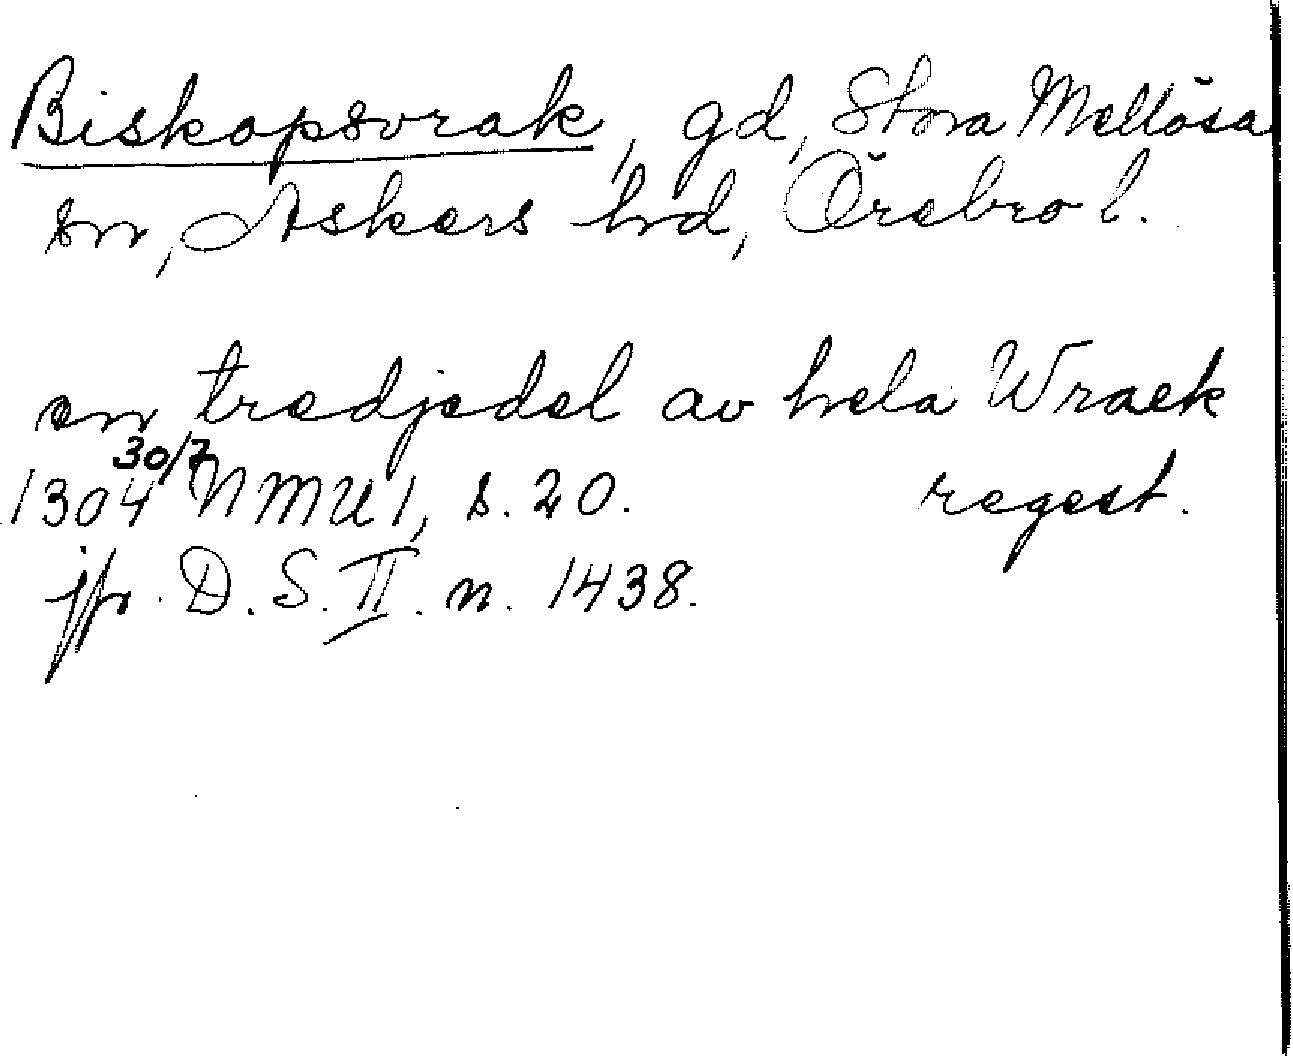 Biskopsvrak, gd, Stora Mellösa
sn, Askers hd, Örebro l.
en tredjedel av hela Wraek
1304 30/7 NMU 1, s. 20. regest.
jfr. D. S. II. n. 1438.